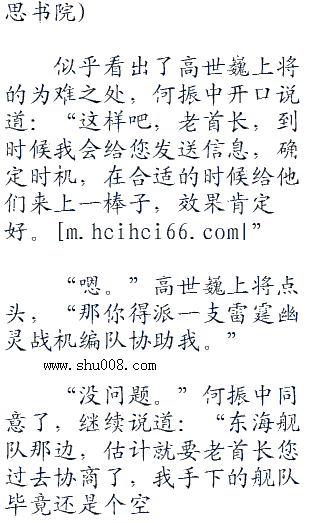 思书院)
似乎看出了高世巍上将
的为难之处，何振中开口说
道：“这样吧，老首长，到
时候我会给您发送信息，确
定时机，在合适的时候给他
们来上一棒子，效果肯定
好。[m.hcihci66.com|”
“嗯。”高世巍上将点
头，“那你得派一支雷霆幽
灵战机编队协助我。”
www.shu008.com
“没问题。”何振中同
意了，继续说道：“东海舰
队那边，估计就要老首长您
过去协商了，我手下的舰队
毕竟还是个空